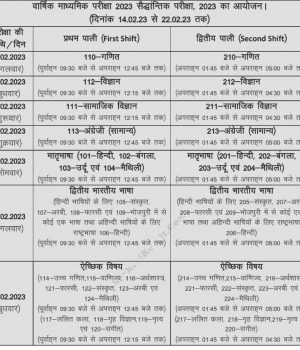 वार्षिक माध्यमिक परीक्षा 2023 सैद्धान्तिक परीक्षा, 2023 का आयोजन।
(दिनांक 14.02.23 से 22.02.23 तक)
प्रथम पाली (First Shift)
द्वितीय पाली (Second Shift)
02.2023
110–गणित
(पूर्वाहन 09.30 बजे से अपराहन 12.45 बजे तक)
210–गणित
(अपराहन 01.45 बजे से अपराहन 05.00 बजे
02.2023
112–विज्ञान
(पूर्वाहन 09.30 बजे से अपराहन 12.45 बजे तक)
212–विज्ञान
(अपराहन 01.45 बजे से अपराहन 04.30 बजे
02.2023
111–सामाजिक विज्ञान
(पूर्वाहन 09.30 बजे से अपराहन 12.15 बजे तक)
211–सामाजिक विज्ञान
(अपराहन 01.45 बजे से अपराहन 04.30 बजे
02.2023
113–अंग्रेजी (सामान्य)
(पूर्वाहन 09.30 बजे से अपराहन 12.45 बजे तक)
213–अंग्रेजी (सामान्य)
(अपराहन 01.45 बजे से अपराहन 05.00 बजे
02.2023
मातृभाषा (101–हिन्दी, 102–बंगला,
103–उर्दू एवं 104–मैथिली)
(पूर्वाहन 09.30 बजे से अपराहन 12.45 बजे तक)
मातृभाषा (201–हिन्दी, 202–बंगला,
203–उर्दू एवं 204–मैथिली)
(अपराहन 01.45 बजे से अपराहन 05.00 बजे
02.2023
द्वितीय भारतीय भाषा
(हिन्दी भाषियों के लिए 105–संस्कृत,
107–अरबी, 108–फारसी एवं 109–भोजपुरी में से
कोई एक भाषा तथा अहिन्दी भाषियों के लिए
राष्ट्रभाषा 106–हिन्दी)
(पूर्वाहन 09.30 बजे से अपराहन 12.45 बजे तक)
द्वितीय भारतीय भाषा
(हिन्दी भाषियों के लिए 205–संस्कृत,
208–फारसी एवं 209–भोजपुरी में से कोई
भाषा तथा अहिन्दी भाषियों के लिए राष्ट्रभाषा
206–हिन्दी)
(अपराहन 01.45 बजे से अपराहन 05.00 बजे
02.2023
ऐच्छिक विषय
(114–उच्च गणित, 115–वाणिज्य, 116–अर्थशास्त्र,
121–फारसी, 122–संस्कृत, 123–अरबी एवं
124–मैथिली)
(पूर्वाहन 09.30 बजे से अपराहन 12.45 बजे तक)
(117–ललित कला, 118–गृह विज्ञान, 119–नृत्य
एवं 120–संगीत)
ऐच्छिक विषय
(214–उच्च गणित, 215–वाणिज्य,
221–फारसी, 222–संस्कृत, 223–अरबी एवं
224–मैथिली)
(अपराहन 01.45 बजे से अपराहन 05.00 बजे
(217–ललित कला, 218–गृह विज्ञान,
220–संगीत)